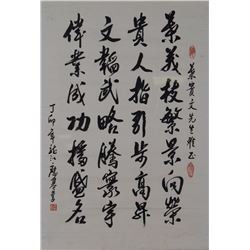 葉貴文先生雅正
葉美枝繁景向榮
貴人指引步高昇
文韜武略騰寰宇
偉業成功播盛名
丁卯年